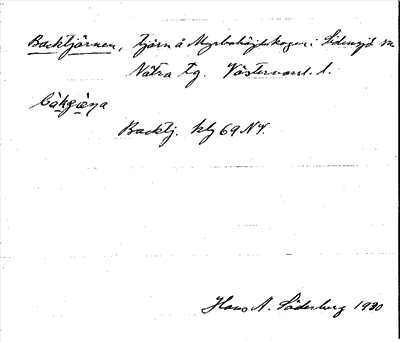 Backtjärnen, tjärn å Myrbohöjdskogen i Sidensjö sn
Nätra tg. Västernorrl. l.
bàkʂæɳa
Backtj. hlj 69 NY.
Hans N. Söderberg 1930